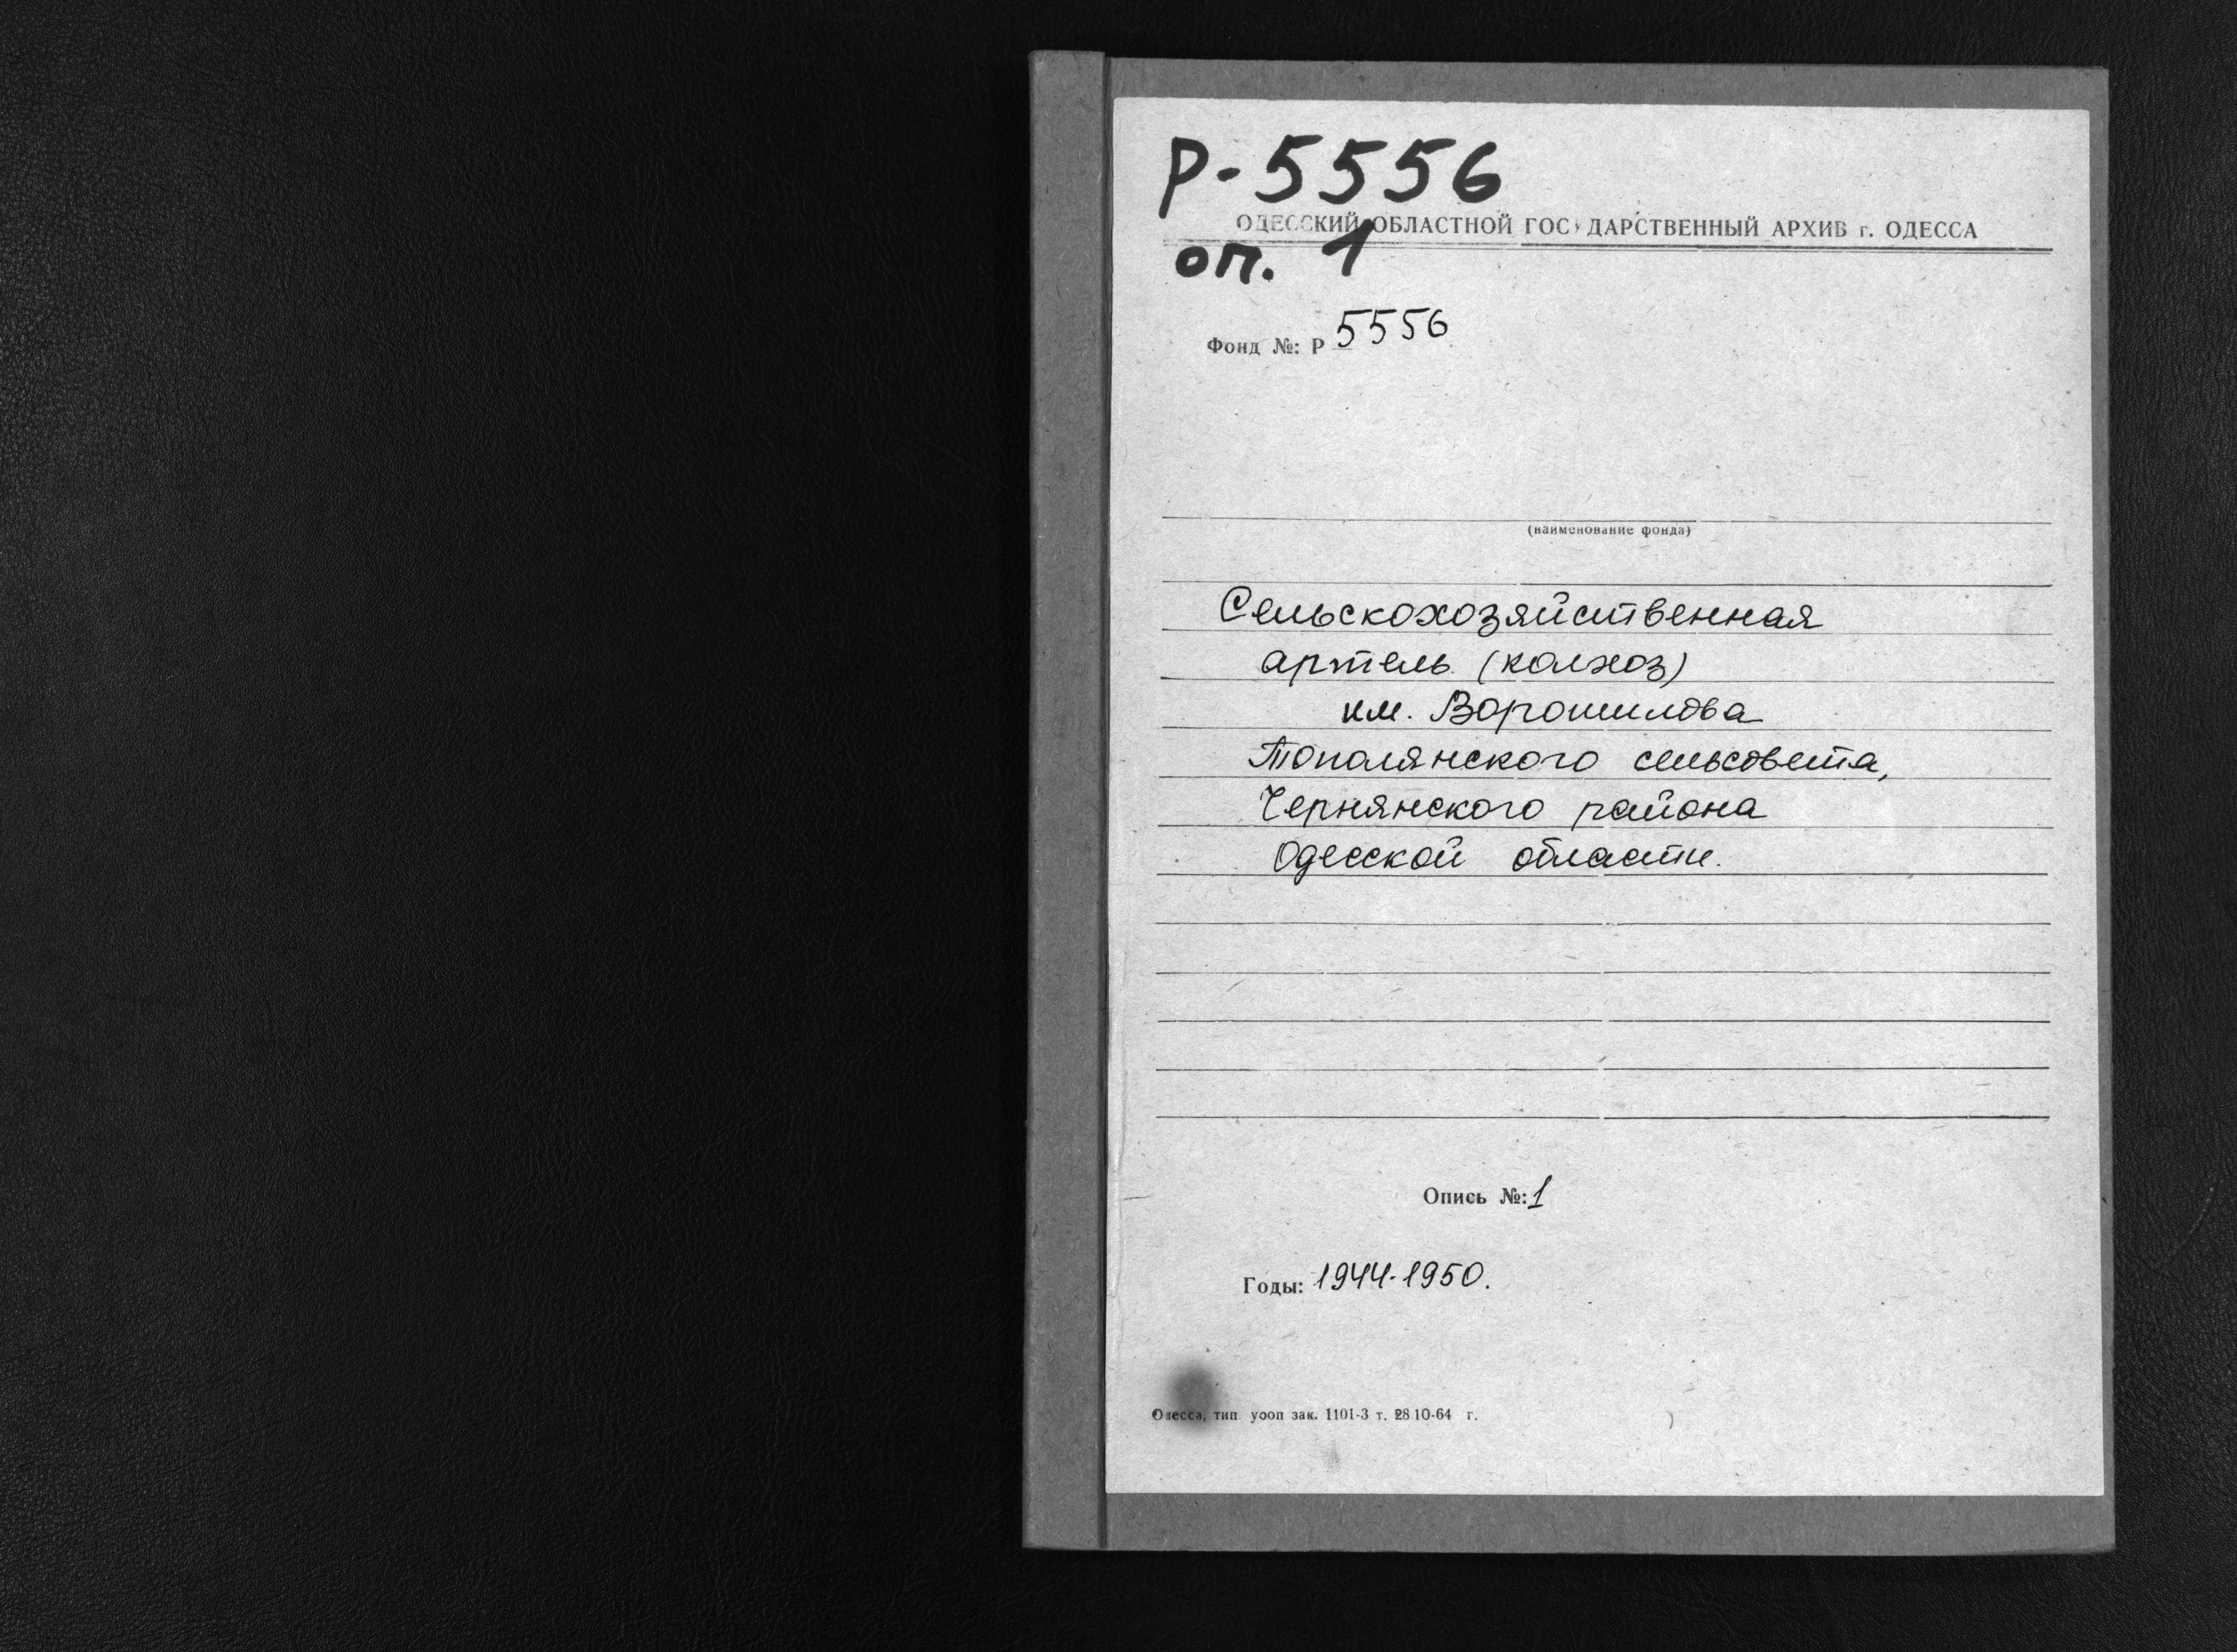 Р-5556
ОДЕССКИЙ ОБЛАСТНОЙ ГОСУДАРСТВЕННЫЙ АРХИВ г. ОДЕССА
оп. 1
Фонд №: Р 5556
(наименование фонда)
Сельскохозяйственная
артель (колхоз)
им. Ворошилова
Тополянского сельсовета,
Чернянского района
Одесской области.
Опись №: 1
Годы: 1944-1950.
Одесса, тип. уооп зак. 1101-3 т. 28.10-64 г.